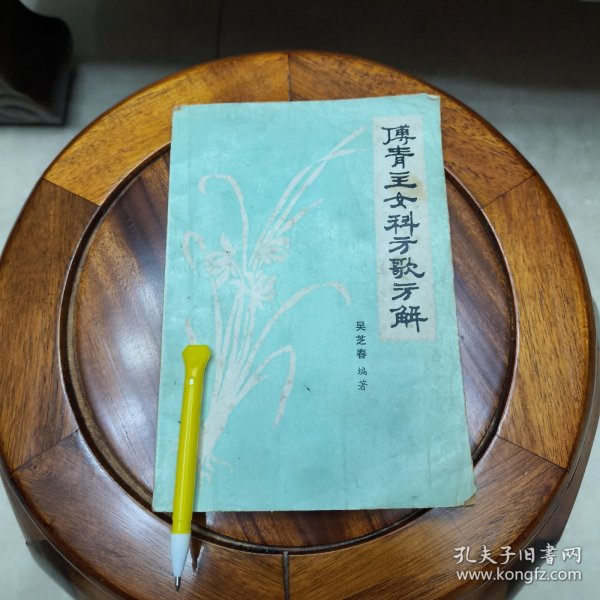 傅青主女科方歌方解
吴芝春 编著
孔夫子旧书网
www.kongfz.com